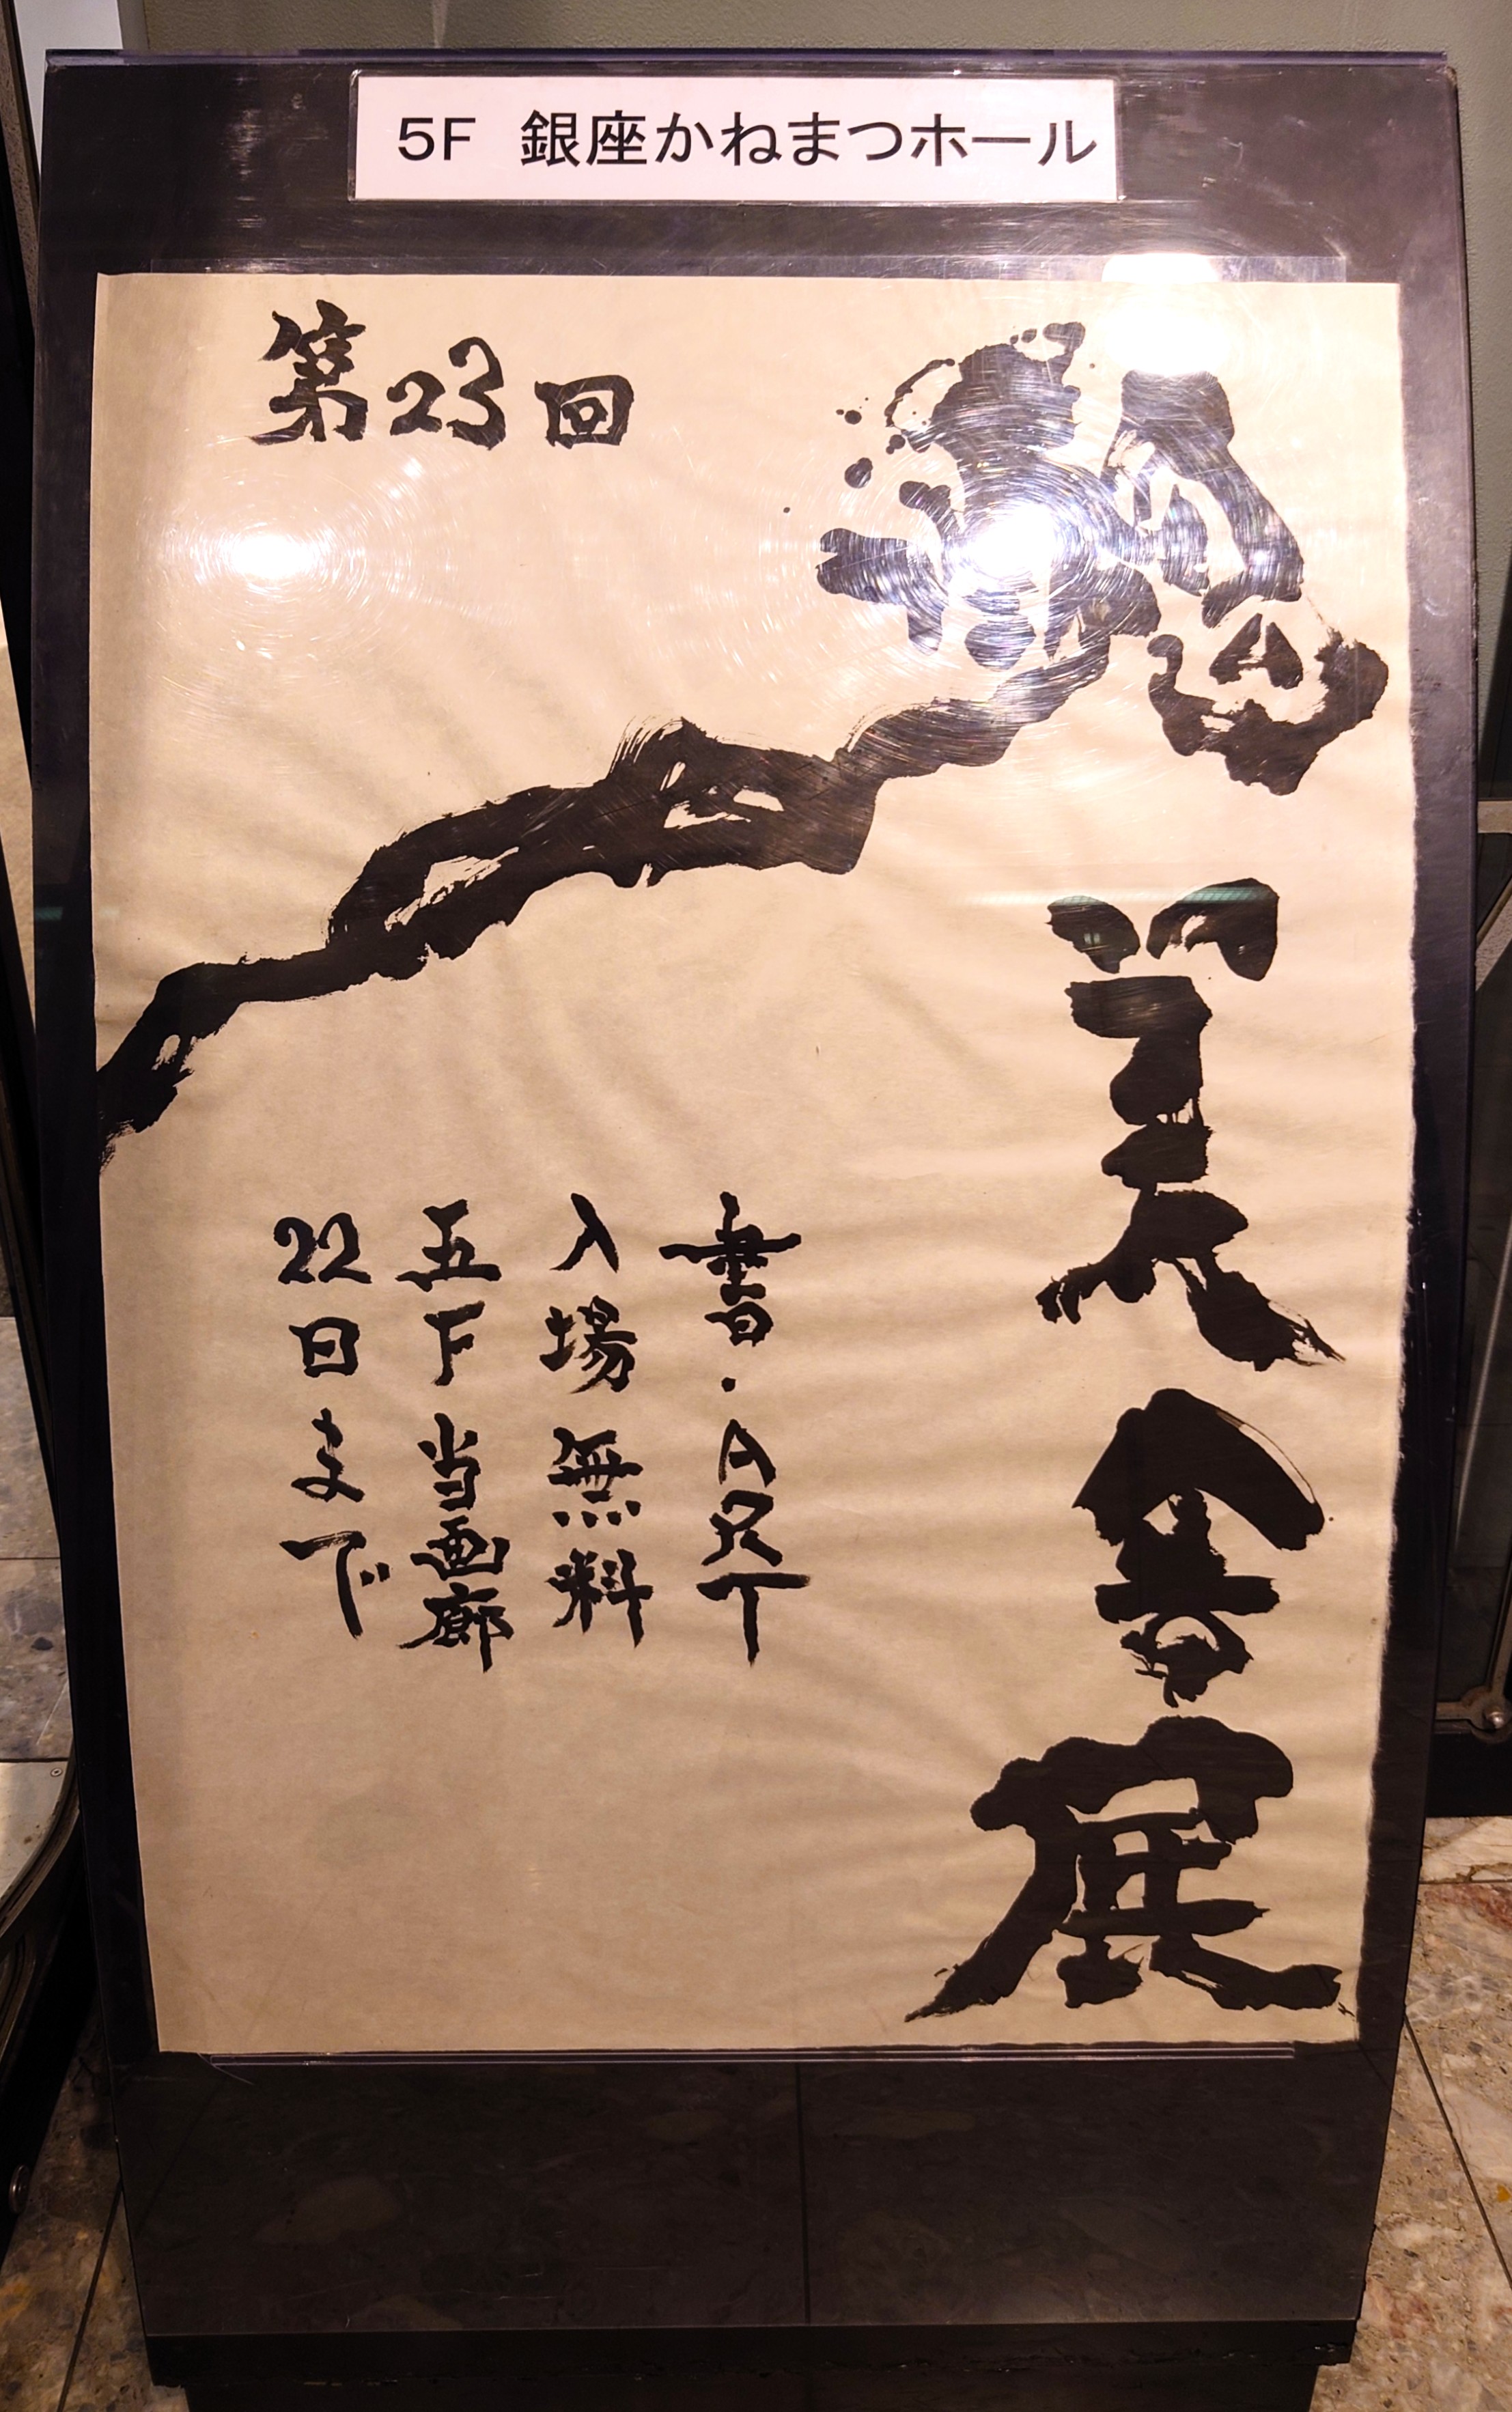 5F 銀座かねまつホール
第23回
美舎展
書・ART
入場無料
五F当画廊
22日まで